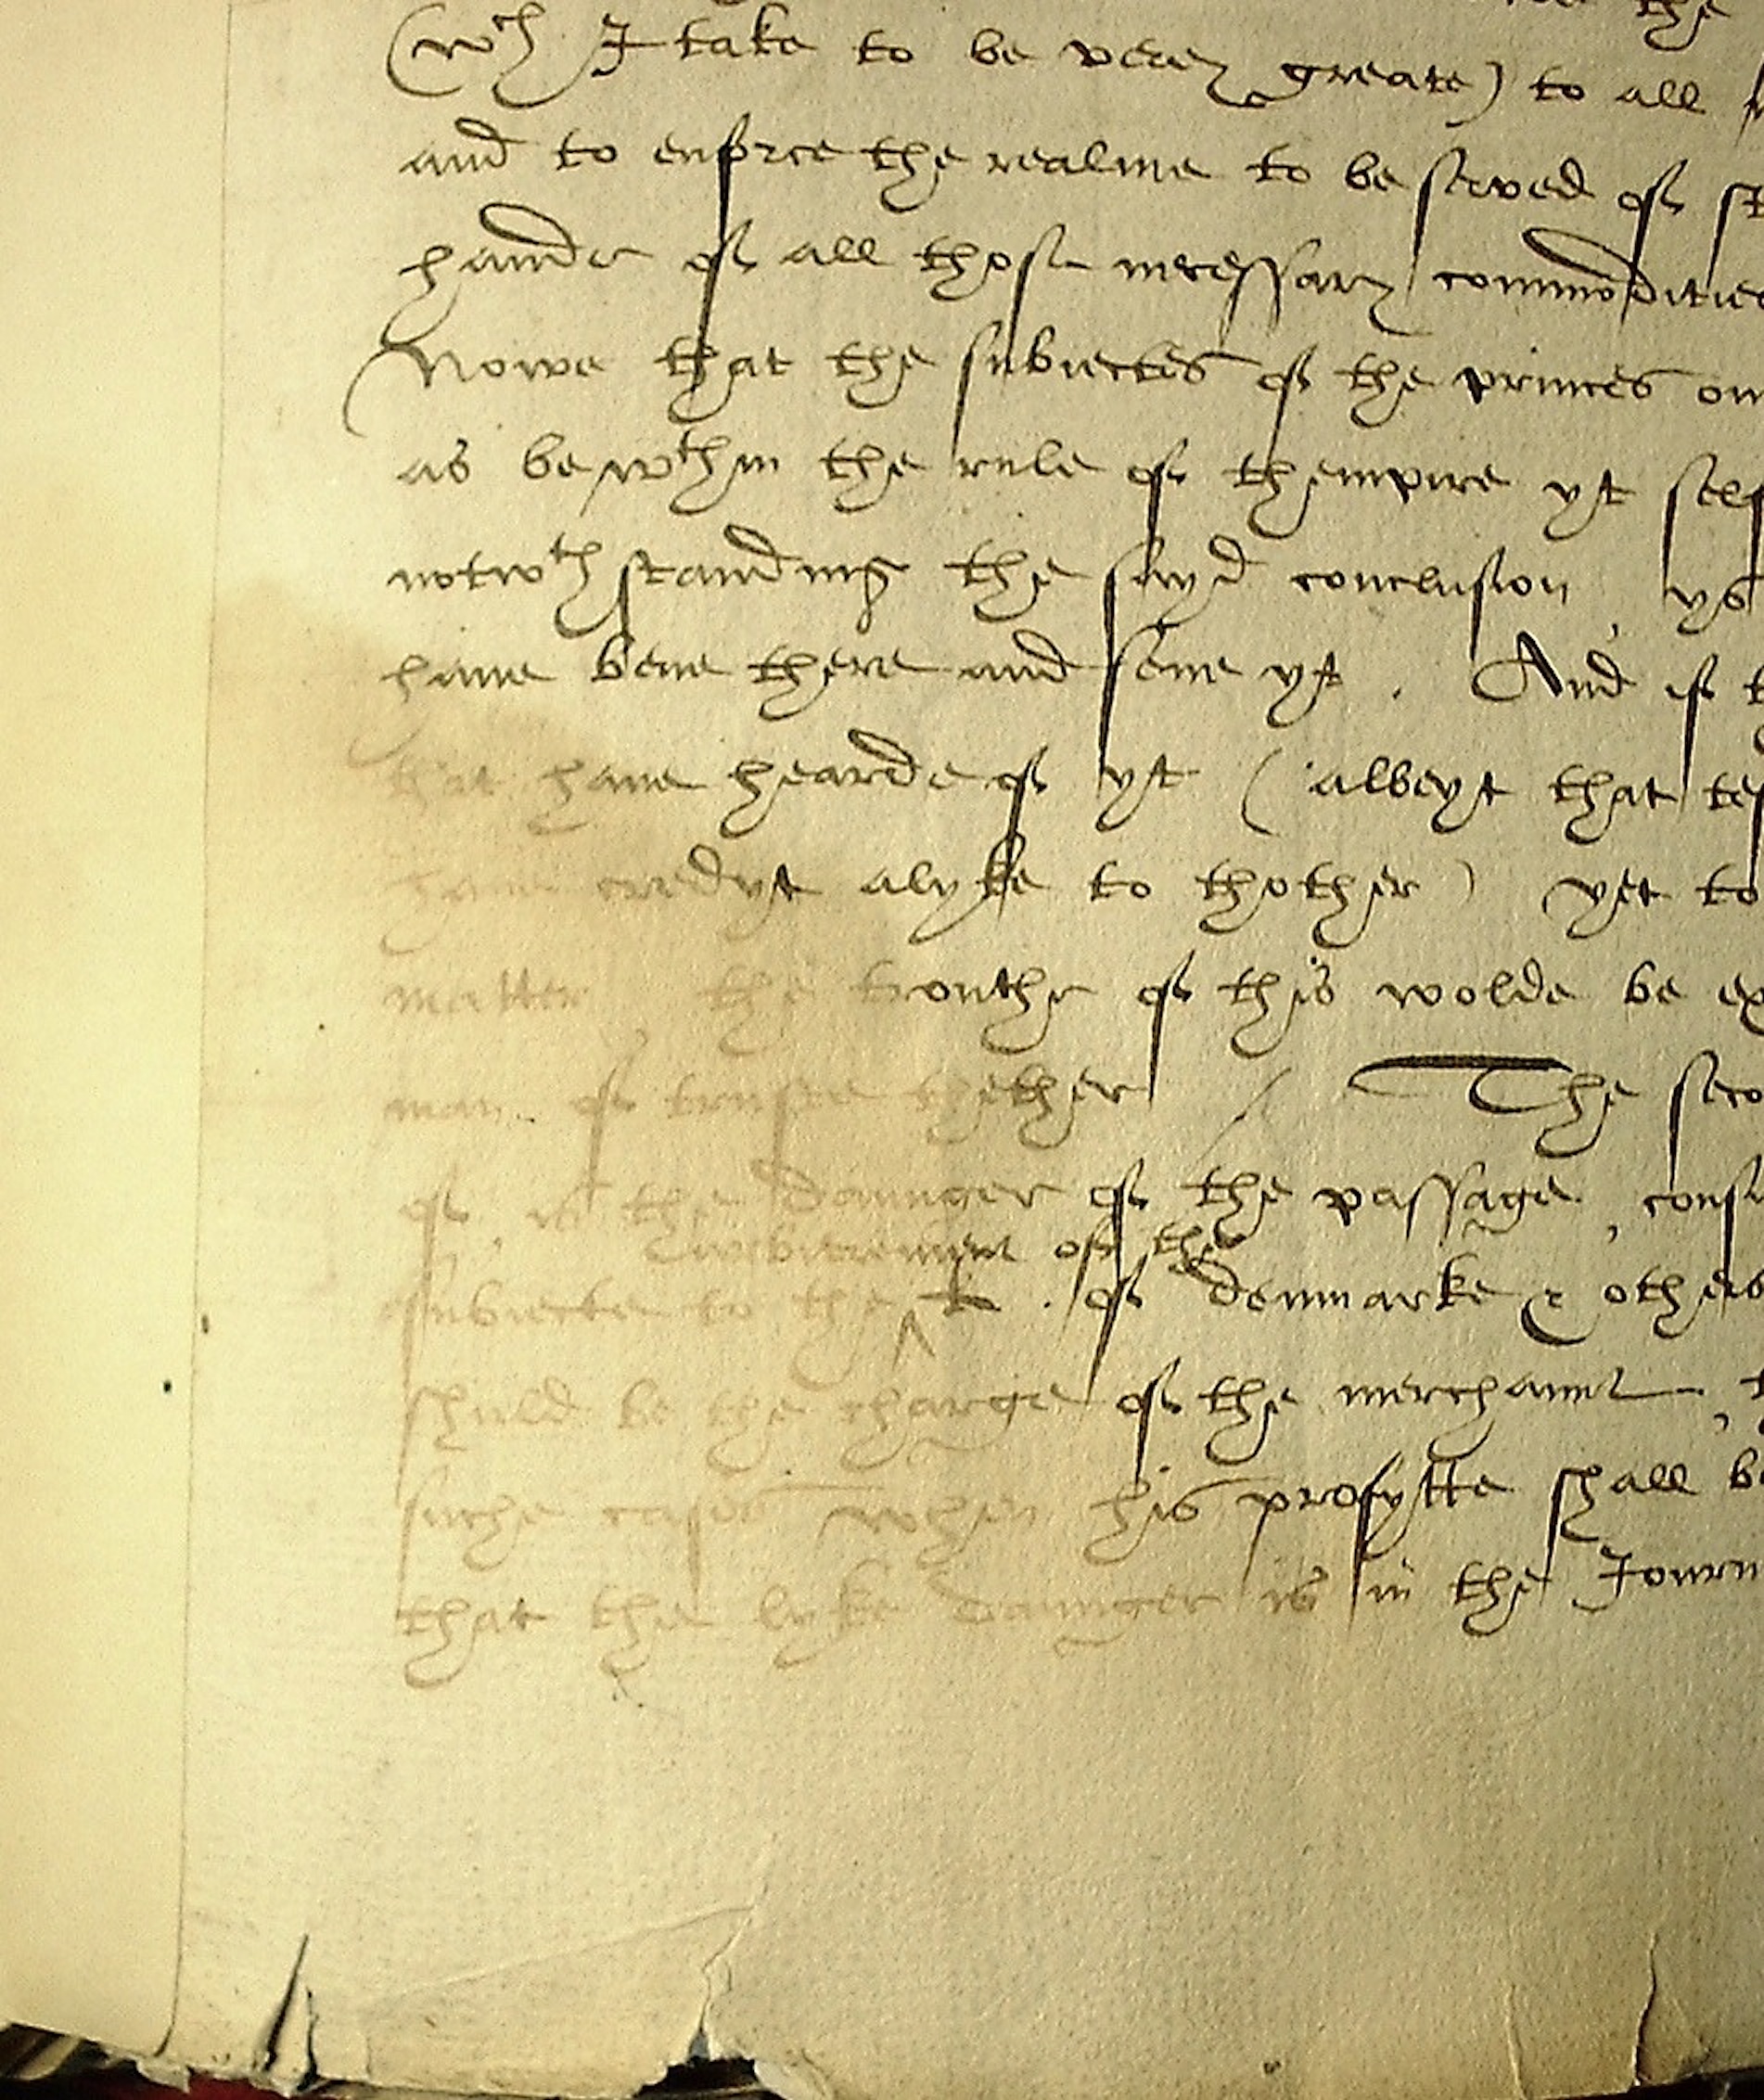 the
(wch I take to be verey greate) to all
and to enforce the realme to be served of st
hande of all those necessary commodities
Nowe that the subiectes of the princes on
as be wthin the rule of thempire yt self
notwthstanding the sayd conclusion , ys
have bene there and sene yt . And if t
that have hearde of yt ( albeyt that tes
have credyt alyke to thother ) yet to
matter , the trouthe of this wolde be ex
man of truste thether / The seco
of is the daunger of the passage , consi
of the
subiecte to the k . of denmarke & others
shuld be the charge of the merchaunt , t
suche cases when his profytte shall be
that the lyke daunger is in the Iourn